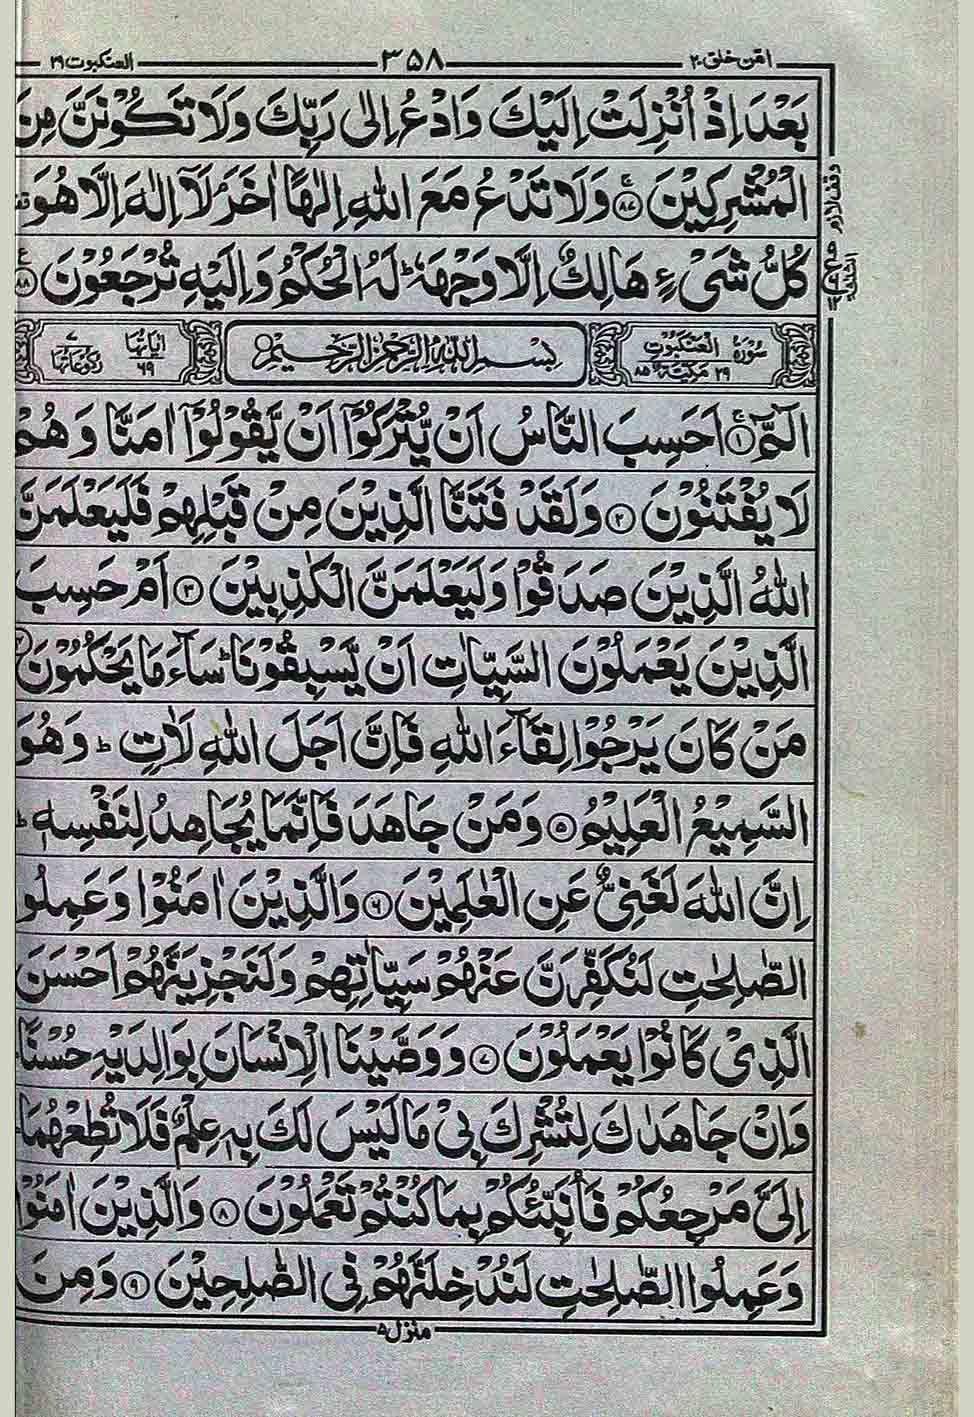 امن خلق ٢٠
٣٥٨
العنكبوت ٢٩
بَعْدَ اِذْ اُنْزِلَتْ اِلَيْكَ وَادْعُ اِلٰى رَبِّكَ وَلَا تَكُوْنَنَّ مِنَ
الْمُشْرِكِيْنَ ۝٨٧ وَلَا تَدْعُ مَعَ اللّٰهِ اِلٰهًا اٰخَرَ ۘ لَاۤ اِلٰهَ اِلَّا هُوَ
كُلُّ شَىْءٍ هَالِكٌ اِلَّا وَجْهَهٗ ؕ لَهُ الْحُكْمُ وَاِلَيْهِ تُرْجَعُوْنَ ۝٨٨
وقف لازم
سُوْرَةُ الْعَنْكَبُوْتِ ٢٩ مَكِّيَّةٌ ٨٥
بِسْمِ اللّٰهِ الرَّحْمٰنِ الرَّحِيْمِ
اٰيَاتُهَا ٦٩
رُكُوْعَاتُهَا ٧
الٓمّٓ ۝١ اَحَسِبَ النَّاسُ اَنْ يُّتْرَكُوْۤا اَنْ يَّقُوْلُوْۤا اٰمَنَّا وَهُمْ
لَا يُفْتَنُوْنَ ۝٢ وَلَقَدْ فَتَنَّا الَّذِيْنَ مِنْ قَبْلِهِمْ فَلَيَعْلَمَنَّ
اللّٰهُ الَّذِيْنَ صَدَقُوْا وَلَيَعْلَمَنَّ الْكٰذِبِيْنَ ۝٣ اَمْ حَسِبَ
الَّذِيْنَ يَعْمَلُوْنَ السَّيِّاٰتِ اَنْ يَّسْبِقُوْنَا ؕ سَآءَ مَا يَحْكُمُوْنَ ۝٤
مَنْ كَانَ يَرْجُوْا لِقَآءَ اللّٰهِ فَاِنَّ اَجَلَ اللّٰهِ لَاٰتٍ ؕ وَهُوَ
السَّمِيْعُ الْعَلِيْمُ ۝٥ وَمَنْ جَاهَدَ فَاِنَّمَا يُجَاهِدُ لِنَفْسِهٖ ؕ
اِنَّ اللّٰهَ لَغَنِىٌّ عَنِ الْعٰلَمِيْنَ ۝٦ وَالَّذِيْنَ اٰمَنُوْا وَعَمِلُوا
الصّٰلِحٰتِ لَنُكَفِّرَنَّ عَنْهُمْ سَيِّاٰتِهِمْ وَلَنَجْزِيَنَّهُمْ اَحْسَنَ
الَّذِىْ كَانُوْا يَعْمَلُوْنَ ۝٧ وَوَصَّيْنَا الْاِنْسَانَ بِوَالِدَيْهِ حُسْنًا
وَاِنْ جَاهَدٰكَ لِتُشْرِكَ بِىْ مَا لَيْسَ لَكَ بِهٖ عِلْمٌ فَلَا تُطِعْهُمَا
اِلَىَّ مَرْجِعُكُمْ فَاُنَبِّئُكُمْ بِمَا كُنْتُمْ تَعْمَلُوْنَ ۝٨ وَالَّذِيْنَ اٰمَنُوْا
وَعَمِلُوا الصّٰلِحٰتِ لَنُدْخِلَنَّهُمْ فِى الصّٰلِحِيْنَ ۝٩ وَمِنَ
منزل ٥